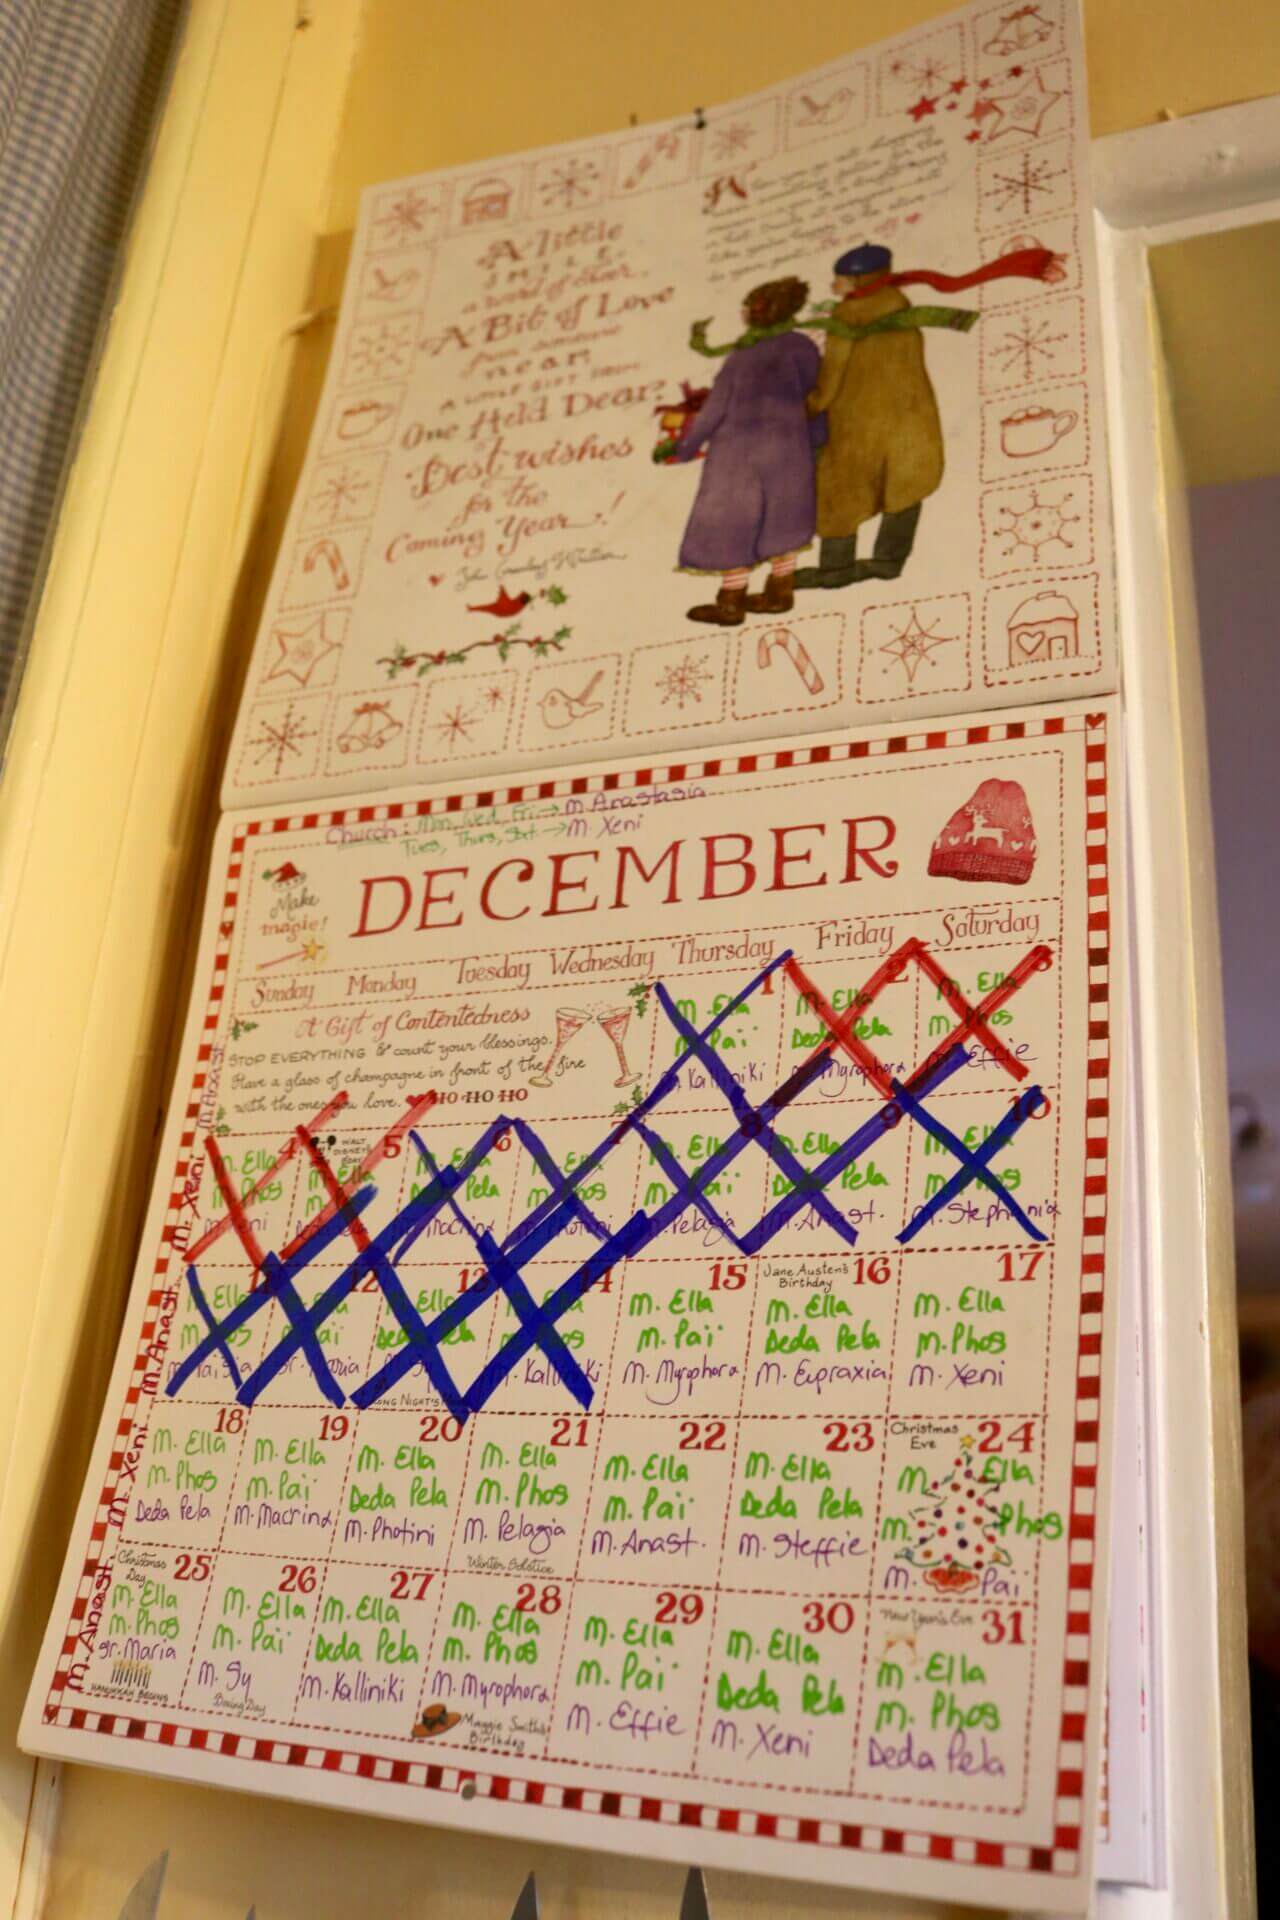 A little
SMILE,
a word of cheer,
A Bit of Love
from someone
near,
A LITTLE GIFT FROM
One Held Dear,
Best wishes
for the
Coming Year!
John Greenleaf Whittier
Church: Mon, Wed, Fri. → M. Anastasia
Tues, Thurs, Sat. → M. Xeni
Make
magic!
DECEMBER
Sunday Monday Tuesday Wednesday Thursday Friday Saturday
A Gift of Contentedness
STOP EVERYTHING & count your blessings.
Have a glass of champagne in front of the fire
with the ones you love. ♥ HO HO HO
M. Anast
1
M. Ella
M. Paï
M. Kalliniki
2
M. Ella
Deda Pela
M. Myrophora
3
M. Ella
M. Phos
M. Effie
M. Xeni
4
M. Ella
M. Phos
M. Xeni
5
WALT
DISNEY'S
BDAY
M. Ella
Deda Pela
6
M. Ella
Deda Pela
M. Macrina
7
M. Ella
M. Phos
M. Photini
8
M. Ella
M. Paï
M. Pelagia
9
M. Ella
Deda Pela
M. Anast.
10
M. Ella
M. Phos
M. Stephania
M. Anast.
11
M. Ella
M. Phos
12
M. Ella
M. Paï
Sr. Maria
13
M. Ella
Deda Pela
M. Sy
14
M. Ella
M. Phos
M. Kalliniki
15
M. Ella
M. Paï
M. Myrophora
Jane Austen's
Birthday
16
M. Ella
Deda Pela
M. Eupraxia
17
M. Ella
M. Phos
M. Xeni
M. Xeni
18
M. Ella
M. Phos
Deda Pela
19
M. Ella
M. Paï
M. Macrina
LONG NIGHT'S
20
M. Ella
Deda Pela
M. Photini
21
M. Ella
M. Phos
M. Pelagia
Winter Solstice
22
M. Ella
M. Paï
M. Anast.
23
M. Ella
Deda Pela
M. Steffie
Christmas
Eve
24
M. Ella
M. Phos
M. Paï
M. Anast.
Christmas
Day
25
M. Ella
M. Phos
Sr. Maria
HANUKKAH BEGINS
26
M. Ella
M. Paï
M. Sy
Boxing Day
27
M. Ella
Deda Pela
M. Kalliniki
28
M. Ella
M. Phos
M. Myrophora
Maggie Smith's
Birthday
29
M. Ella
M. Paï
M. Effie
30
M. Ella
Deda Pela
M. Xeni
New Year's Eve
31
M. Ella
M. Phos
Deda Pela